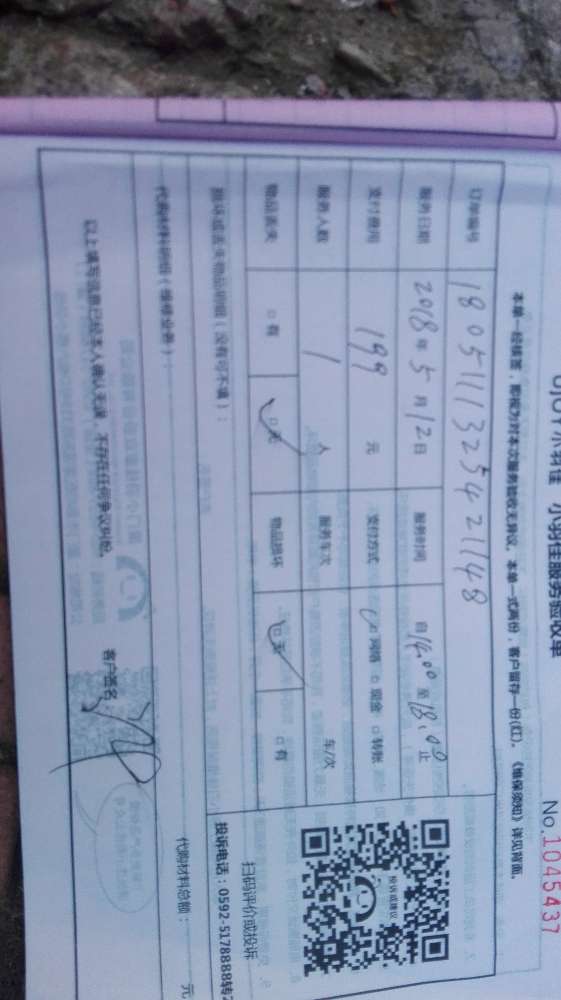 小羽佳服务验收单
No.1045437
本单一经核签，即视为对本次服务验收无异议。本单一式两份，客户留存一份(红)。《维保须知》详见背面。
订单编号 1805111325421148
服务日期 2018年5月12日 服务时间 自14:00至18:00止
支付费用 199 元 支付方式 □网络 □现金 □转账
服务人数 1 人 服务车次 车/次
物品丢失 □有 □无 物品损坏 □无 □有
损坏或丢失物品明细（没有可不填）：
投诉或建议
扫码评价或投诉
投诉电话：0592-5178888转2
代购材料明细（维修业务）： 代购材料总额： 元
以上填写信息已经本人确认无误，不存在任何争议纠纷。 客户签名：